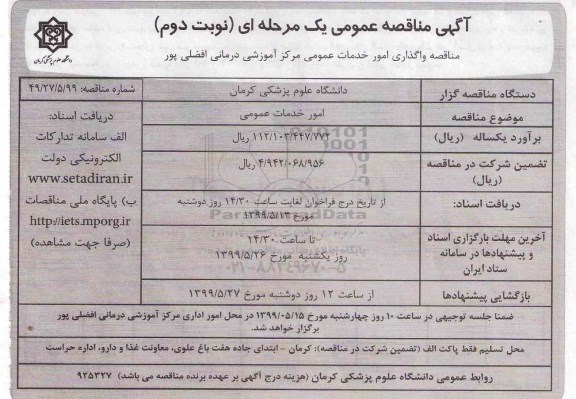 آگهی مناقصه عمومی یک مرحله ای (نوبت دوم)
مناقصه واگذاری امور خدمات عمومی مرکز آموزشی درمانی افضلی پور
دانشگاه علوم پزشکی کرمان
دستگاه مناقصه گزار
دانشگاه علوم پزشکی کرمان
شماره مناقصه: ۴۹/۲۷/۵/۹۹
موضوع مناقصه
امور خدمات عمومی
برآورد یکساله (ریال)
۱۱۲/۱۰۳/۴۴۷/۷۷۲ ریال
تضمین شرکت در مناقصه
(ریال)
۴/۹۴۲/۰۶۸/۹۵۶ ریال
دریافت اسناد:
از تاریخ درج فراخوان لغایت ساعت ۱۴/۳۰ روز دوشنبه
مورخ ۱۳۹۹/۵/۱۳
آخرین مهلت بارگزاری اسناد
و پیشنهادها در سامانه
ستاد ایران
تا ساعت ۱۴/۳۰
روز یکشنبه مورخ ۱۳۹۹/۵/۲۶
بازگشایی پیشنهادها
از ساعت ۱۲ روز دوشنبه مورخ ۱۳۹۹/۵/۲۷
دریافت اسناد:
الف سامانه تدارکات
الکترونیکی دولت
www.setadiran.ir
ب) پایگاه ملی مناقصات
http://iets.mporg.ir
(صرفا جهت مشاهده)
ضمنا جلسه توجیهی در ساعت ۱۰ روز چهارشنبه مورخ ۱۳۹۹/۰۵/۱۵ در محل امور اداری مرکز آموزشی درمانی افضلی پور
برگزار خواهد شد.
محل تسلیم فقط پاکت الف (تضمین شرکت در مناقصه): کرمان – ابتدای جاده هفت باغ علوی، معاونت غذا و دارو، اداره حراست
روابط عمومی دانشگاه علوم پزشکی کرمان (هزینه درج آگهی بر عهده برنده مناقصه می باشد) ۹۲۵۳۲۷
۰۲۱-۸۸۳۴۹۶۷۰-۵